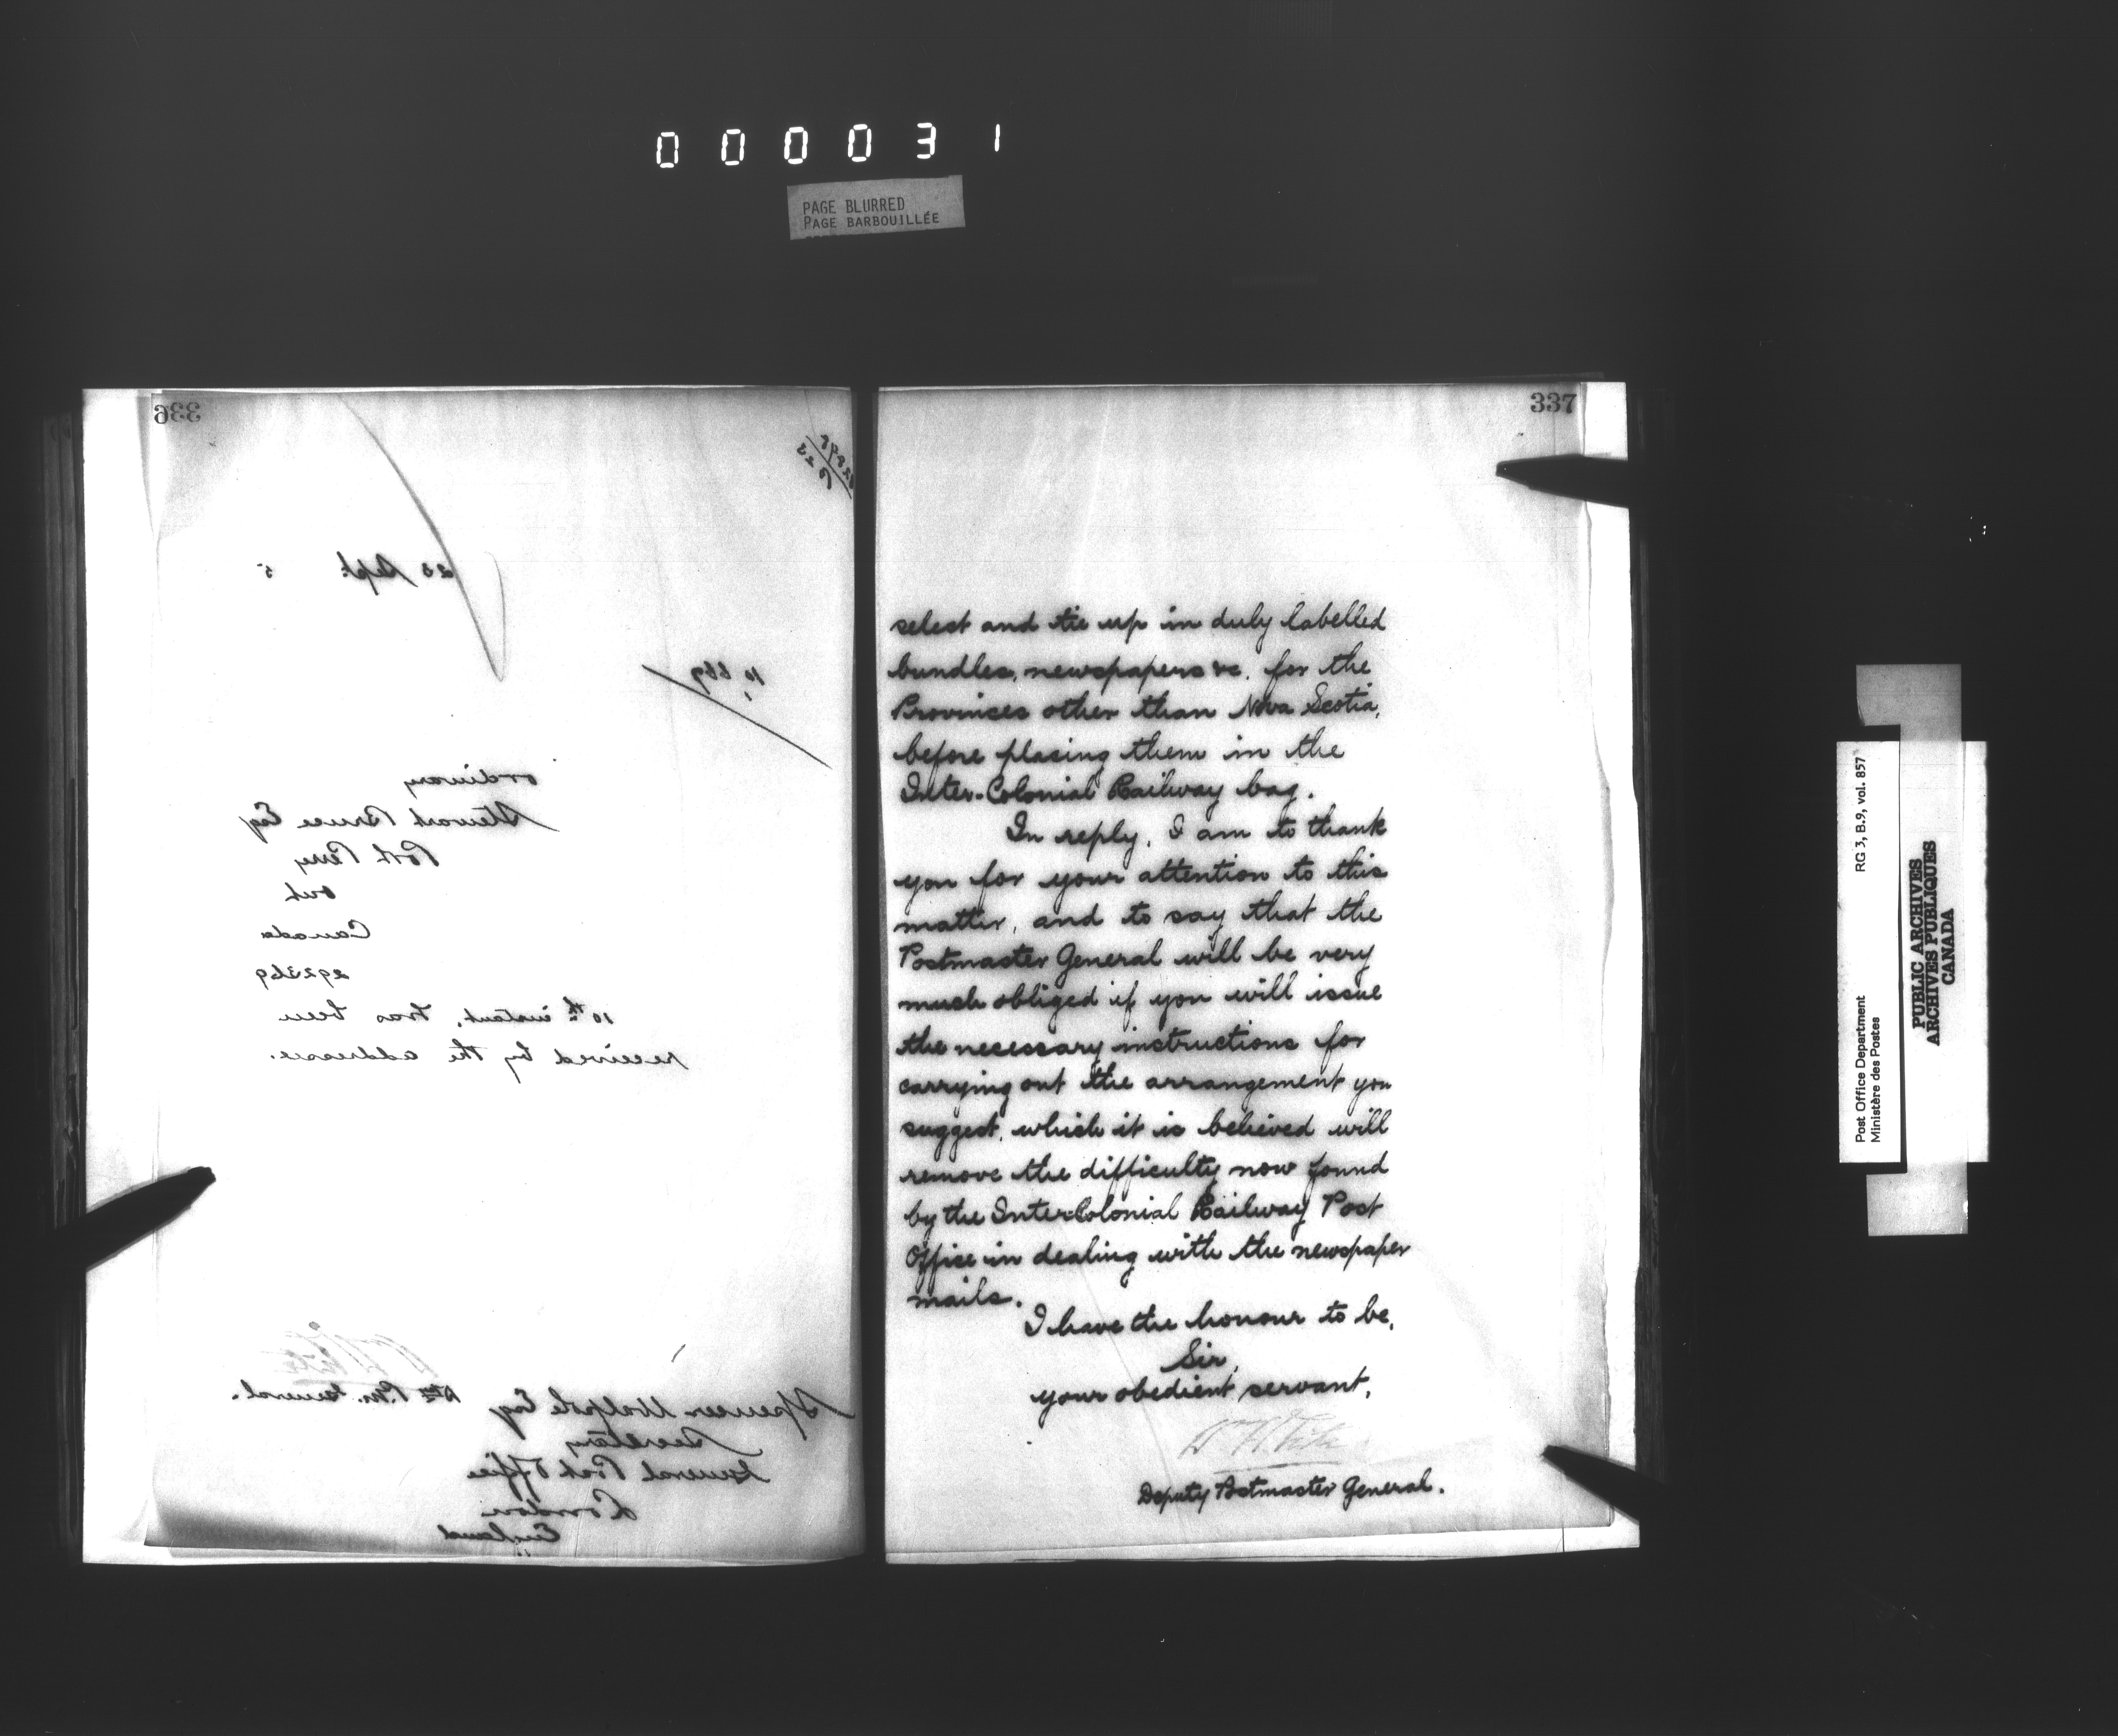 000031
PAGE BLURRED
PAGE BARBOUILLÉE
336
23 Sept. 5
10,669
ordinary
Stewart Bruce Esq
Port Perry
Ont
Canada
292369
10th instant, has been
received by the addressee.
Dty P.M. General.
Spencer Walpole Esq
Secretary
General Post Office
London
England
337
select and tie up in duly labelled
bundles, newspapers &c. for the
Provinces other than Nova Scotia,
before placing them in the
Inter-Colonial Railway bag.
In reply, I am to thank
you for your attention to this
matter, and to say that the
Postmaster General will be very
much obliged if you will issue
the necessary instructions for
carrying out the arrangement you
suggest, which it is believed will
remove the difficulty now found
by the InterColonial Railway Post
Office in dealing with the newspaper
mails.
I have the honour to be,
Sir,
your obedient servant,
Deputy Postmaster General.
Post Office Department
Ministère des Postes
RG 3, B.9, vol. 857
PUBLIC ARCHIVES
ARCHIVES PUBLIQUES
CANADA